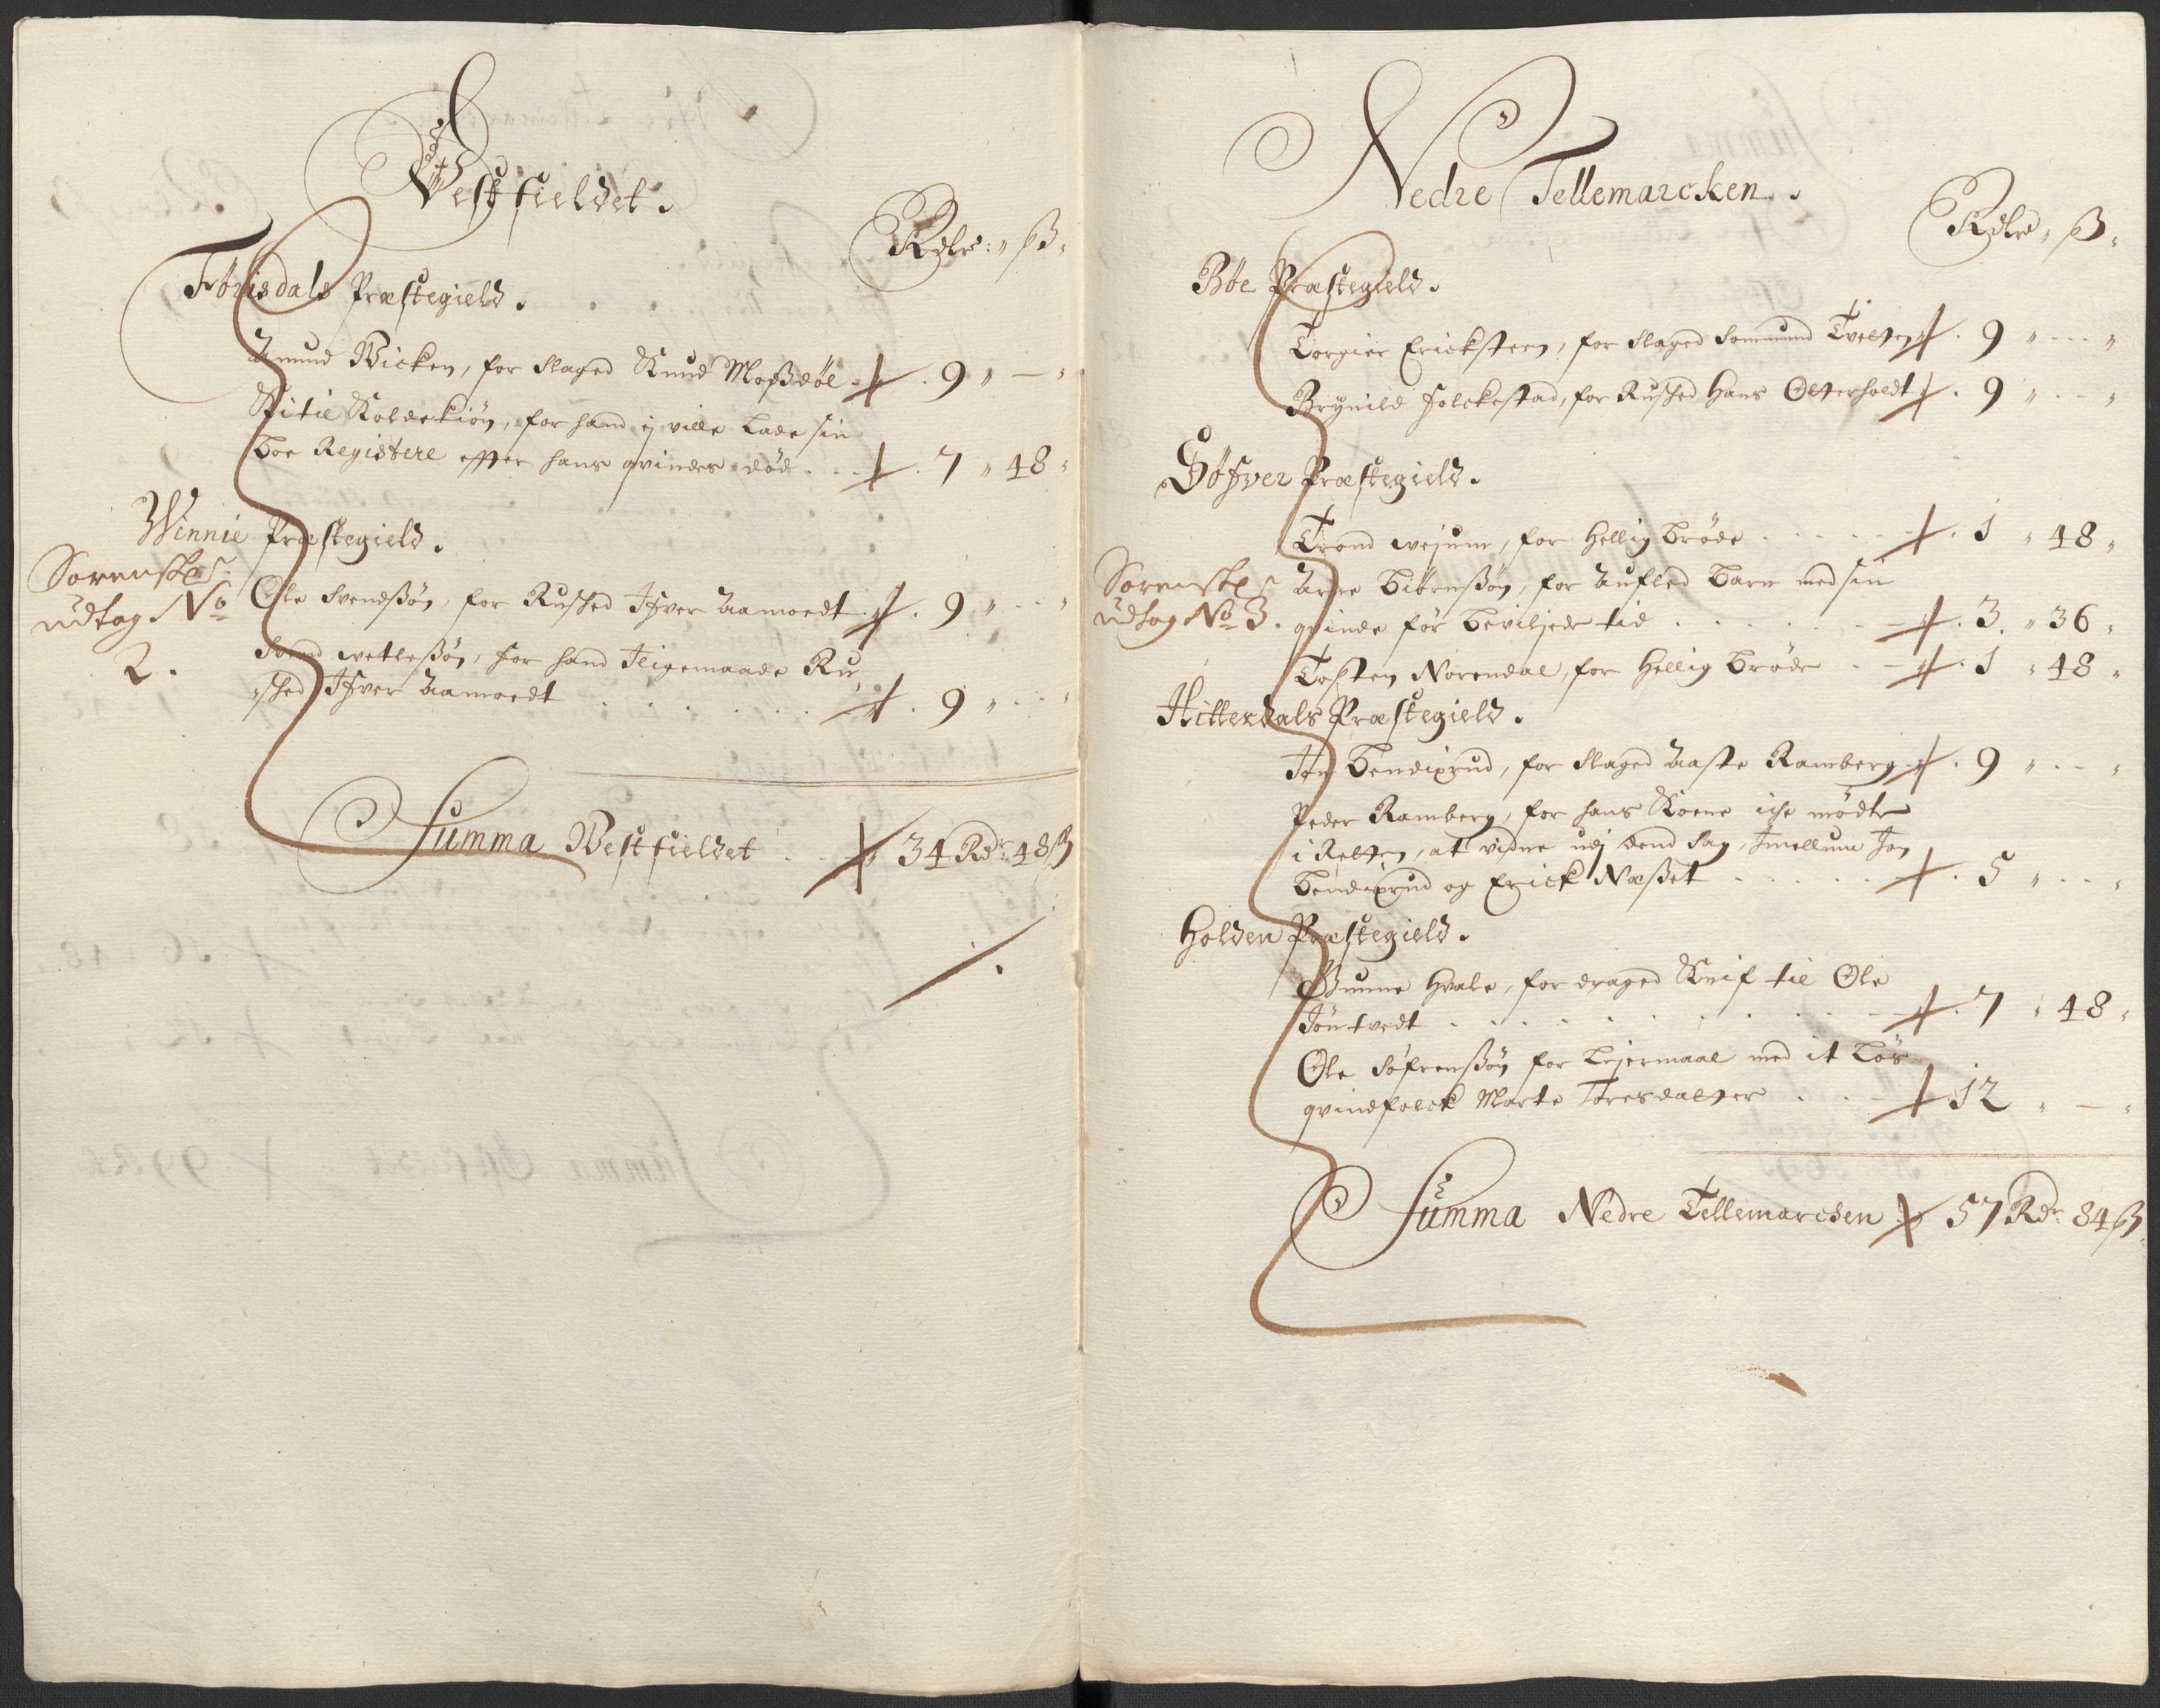 Vestfieldet.
Rdlr: ß.
Førisdals Præstegield.
Amund Wicken, for slaged Knud Moßdøl . 9 " — "
Kitil Koldekiøn, for hand ej ville lade sin
boe Registere effter hans qvindes død . . . 7 " 48 "
Winnie Præstegield.
Sorenskr:s
udtog No
2.
Ole Svendßøn, for Rusked Ifver Aamoedt . 9 " . . "
Svend wetleßøn, for hand Iligemaade Ru,
"sked Ifver Aamoedt . . . . . . 9 " . . "
Summa Westfieldet . . 34 Rdr: 48 ß
Nedre Tellemarcken.
Rdlr " ß "
Bøe Præstegield.
Torgier Ericksteen, for slaged Sommund Tveten . 9 " . . . "
Brynild Folckestad, for Rusked Hans Olterholdt . 9 " . . "
Søfver Præstegield.
Trond wejum, for Hellig brøde . . . . . 1 " 48 "
Sorenskr:s
udtog No 3.
Arne Biørnßøn, for aufled barn med sin
qvinde før beviljede tid . . . . . . 3. " 36 "
Tosten Norendal, for Hellig brøde . . 1 " 48 "
Hitterdals Præstegield.
Jon Bendixrud, for slaged Aaste Ramberg . 9 " . . "
Peder Ramberg, for hans Koene iche mødte
i Retten, at vidne udj dend sag, Imellum Jon
Bendixrud og Erick Næßet . . . . . . 5 " . . "
Holden Præstegield.
Gunne Hvale, for draged Knif til Ole
Jøntvedt . . . . . . . . . . 7 " 48 "
Ole Søfrenßøn for Lejermaal med it løs
qvindfolck Marte Toresdatter . . . 12 " — "
Summa Nedre Tellemarcken 57 Rdr: 84 ß